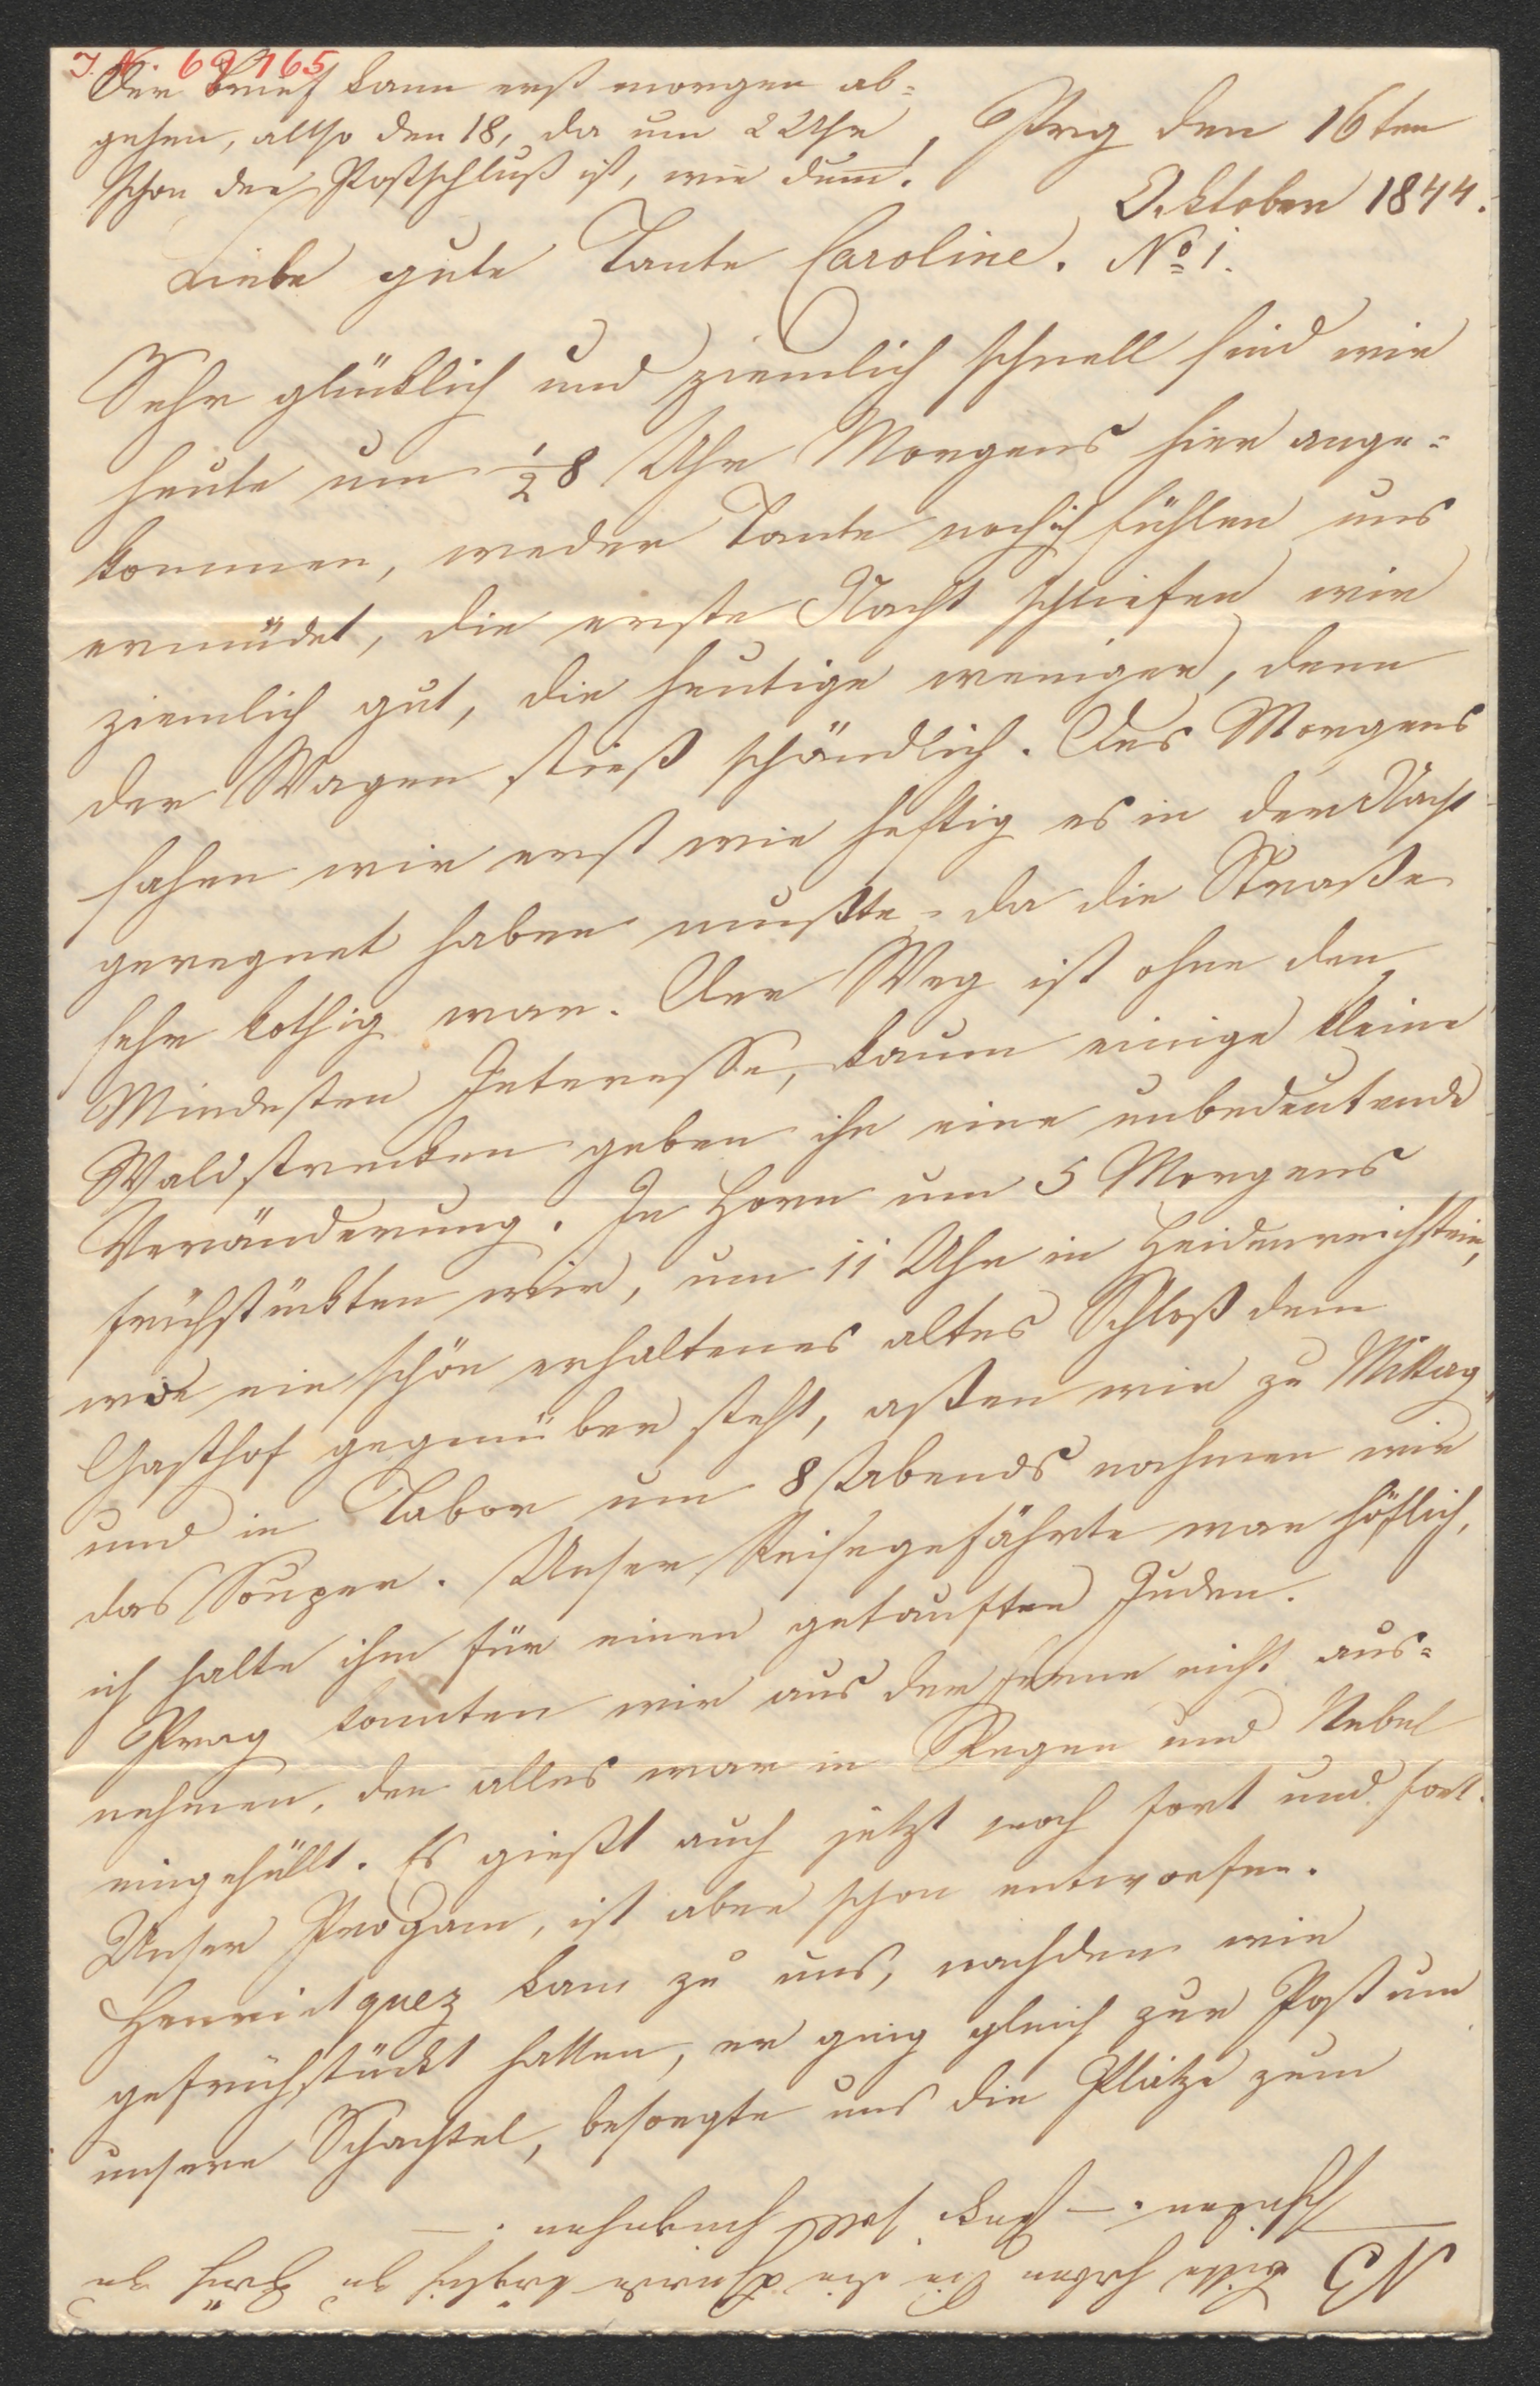 I. N. 69765
Der Brief kann erst morgen ab=
gehen, allso den 18, da um 2 Uhr
schon der Postschluß ist, wie dum̅.
Prg den 16ten
Oktober 1844.
Liebe gute Tante Caroline. No 1.
Sehr glücklich und ziemlich schnell sind wir
heute um ½8 Uhr Morgens hier ange=
kommen, weder Tante noch ich fühlen uns
ermüdet, die erste Nacht schliefen wir
ziemlich gut, die heutige weniger, denn
der Wagen stieß schändlich. Des Morgens
sahen wir erst wie heftig es in der Nacht
geregnet haben mußte, da die Straße
sehr kothig war. Der Weg ist ohne den
Mindesten Interesse, kaum einige kleine
Waldstrecken geben ihr eine unbedeutende
Veränderung. In Horn um 5 Morgens
frühstückten wir, um 11 Uhr in Heidenreichstein,
wo ein schön erhaltenes altes Schloß dem
Gasthof gegenüber steht, aßen wir zu Mittag
und in Tabor um 8 Abends nahmen wir
das Souper. Unser Reisegefährte war höflich,
ich halte ihn für einen getauften Juden.
Prag konnten wir aus der Ferne nicht aus=
nehmen, den alles war in Regen und Nebel
eingehüllt. Es gießt auch jetzt noch fort und fort.
Unser Progam, ist aber schon entworfen.
Henrietquez kam zu uns, nachdem wir
gefrühstückt hatten, er ging gleich zur Post um
unsere Schachtel, besorgte uns die Plätze zum
NB Bitte